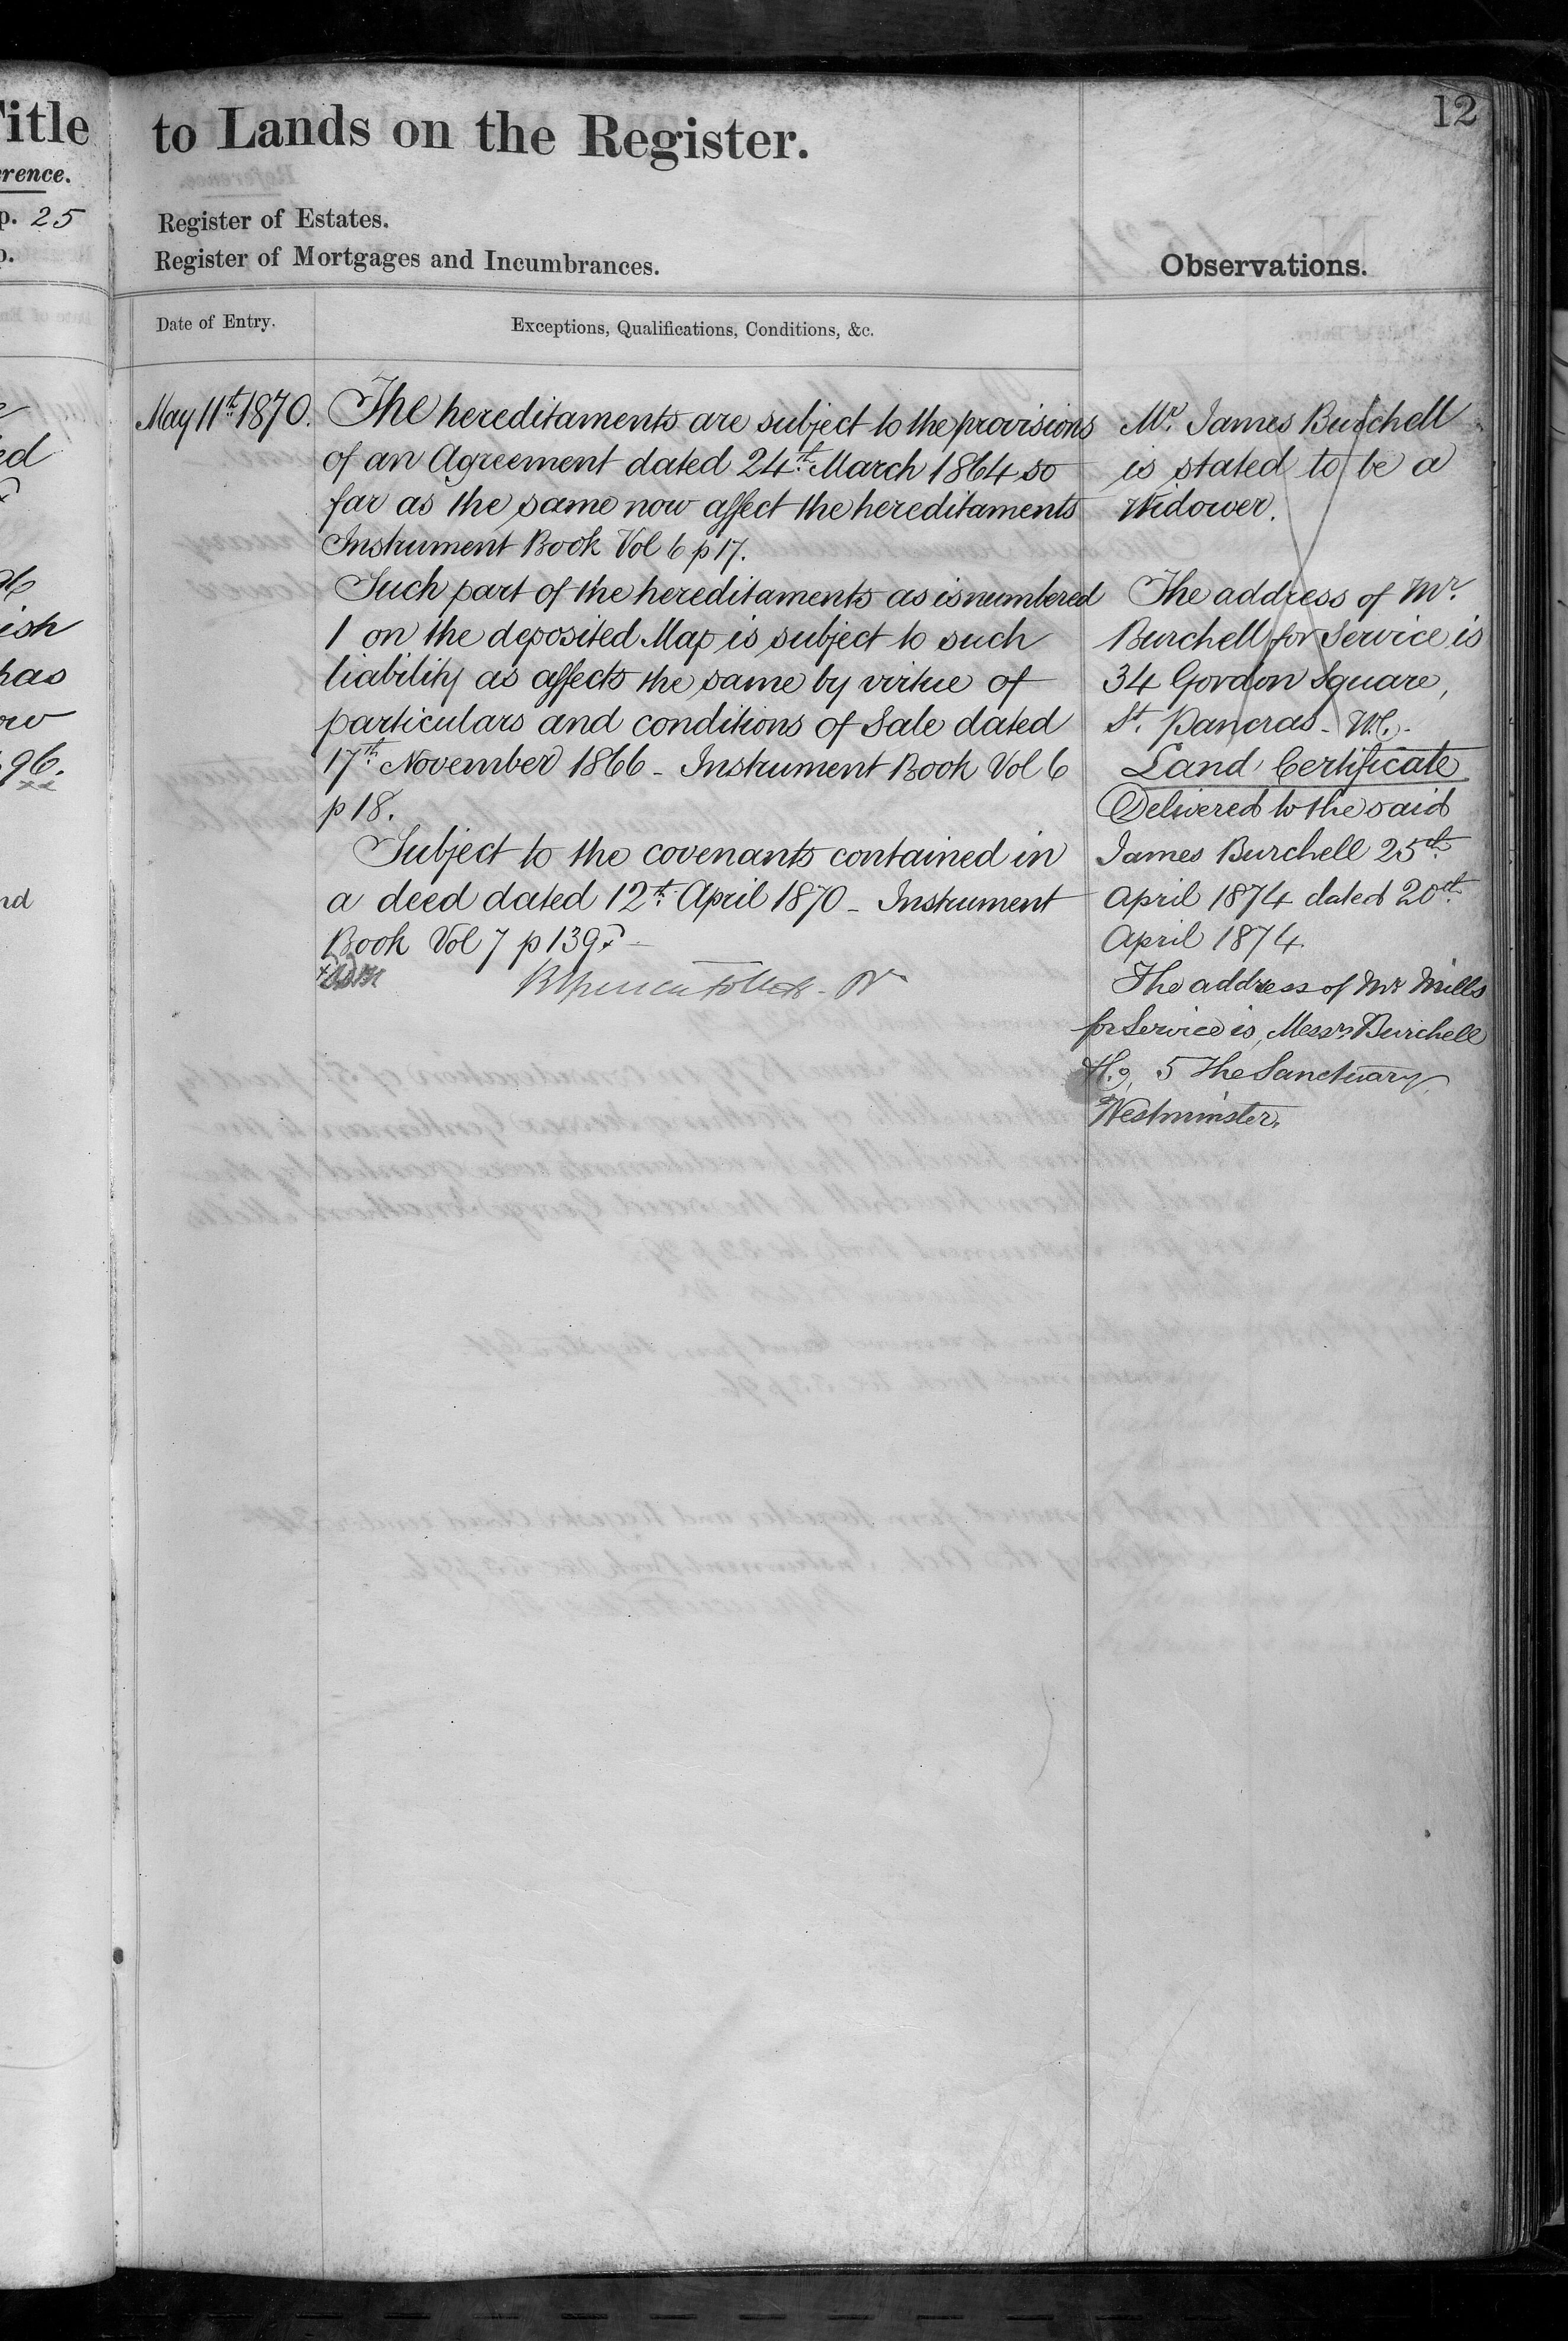 Title
to Lands on the Register.
12
p. 25
Register of Estates.
Register of Mortgages and Incumbrances.
Observations.
Date of Entry.
Exceptions, Qualifications, Conditions, &c.
May 11th 1870.
The hereditaments are subject to the provisions
of an Agreement dated 24th March 1864 so
far as the same now affect the hereditaments
Instrument Book Vol 6 p 17.
Such part of the hereditaments as is numbered
1 on the deposited Map is subject to such
liability as affects the same by virtue of
particulars and conditions of Sale dated
17th November 1866 - Instrument Book Vol 6
p 18.
Subject to the covenants contained in
a deed dated 12th April 1870 - Instrument
Book Vol 7 p 139
Mr. James Burchell
is stated to be a
Widower.
The address of Mr.
Burchell for Service is
34 Gordon Square,
St. Pancras - W.C.
Land Certificate
Delivered to the said
James Burchell 25th
April 1874 dated 20th
April 1874.
The address of Mr Mills
for Service is, Messrs Burchell
5 The Sanctuary,
Westminster.